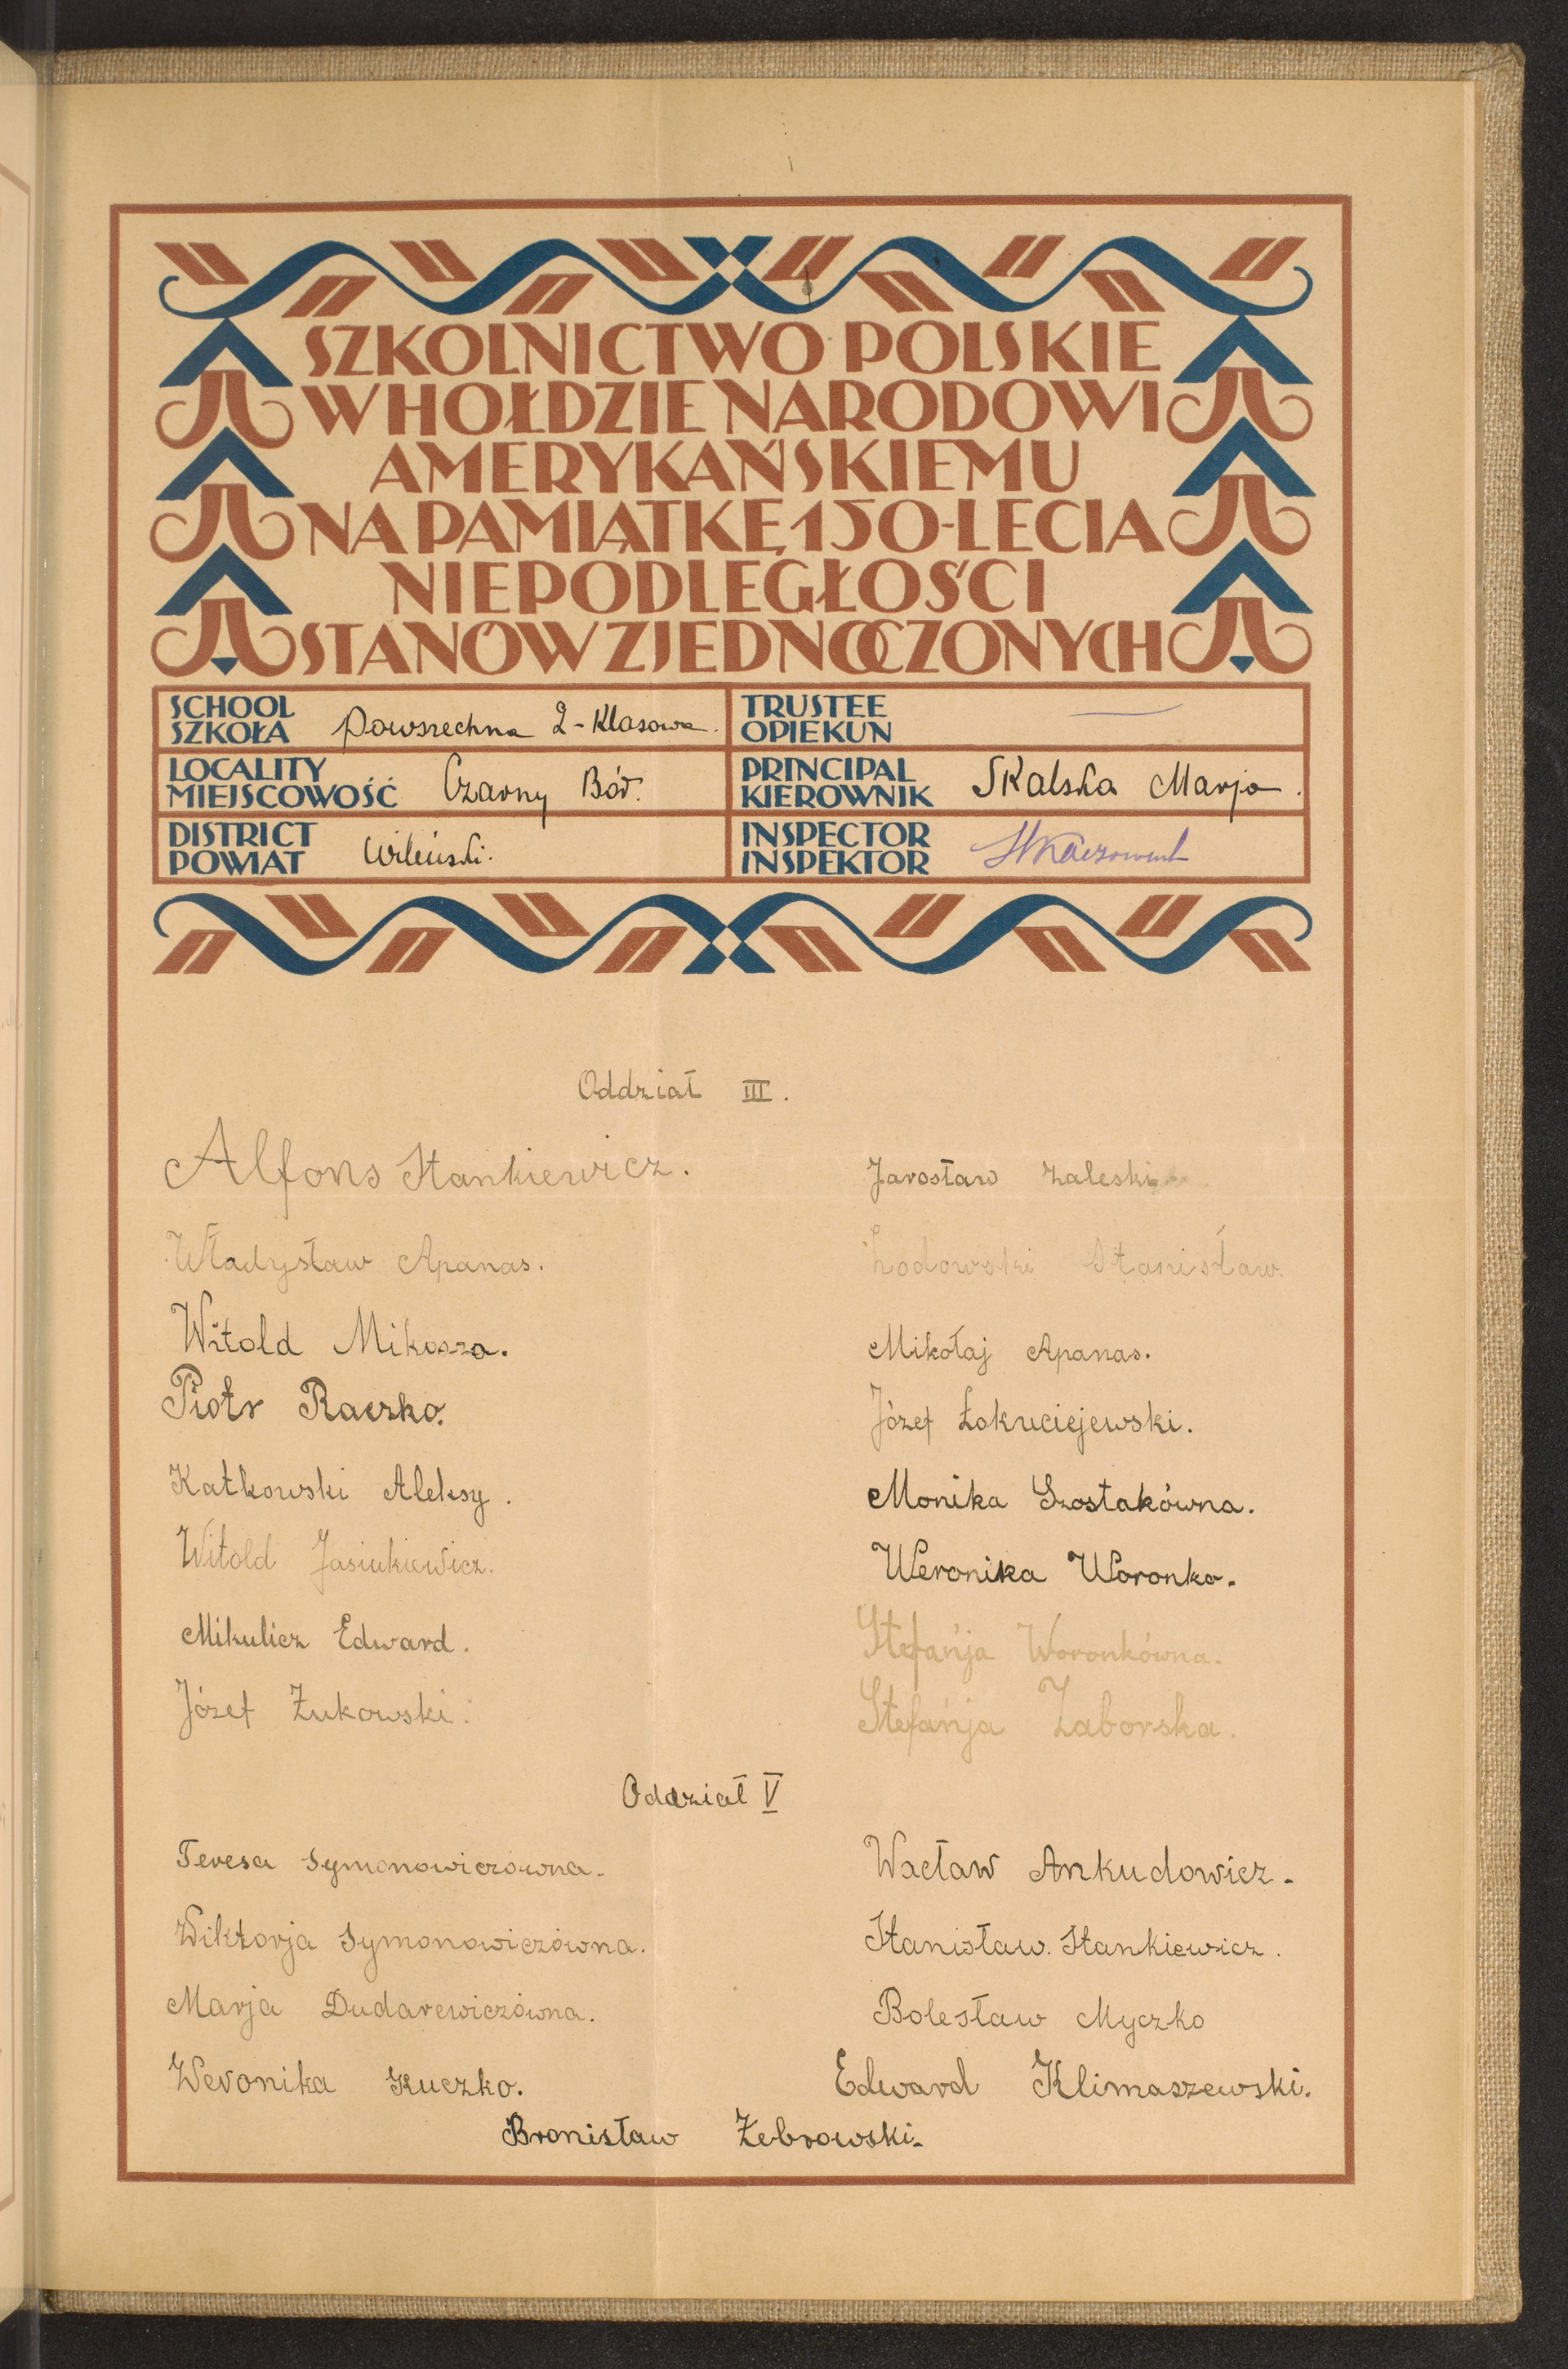 SZKOLNICTWO POLSKIE
W HOŁDZIE NARODOWI
AMERYKAŃSKIEMU
NA PAMIĄTKĘ 150-LECIA
NIEPODLEGŁOŚCI
STANÓW ZJEDNOCZONYCH
SCHOOL
SZKOŁA Powszechna 2-Klasowa.
TRUSTEE
OPIEKUN
LOCALITY
MIEJSCOWOŚĆ Czarny Bór.
PRINCIPAL
KIEROWNIK Skalska Marja.
DISTRICT
POWIAT Wileński.
INSPECTOR
INSPEKTOR
Oddział III.
Alfons Stankiewicz.
Władysław Apanas.
Witold Mikosza.
Piotr Raczko.
Katkowski Aleksy.
Witold Jasiukiewicz.
Mikulicz Edward.
Józef Żukowski.
Jarosław Zaleski
Stanisław.
Mikołaj Apanas.
Józef Łokuciejewski.
Monika Szostakówna.
Weronika Woronko.
Stefańja Woronkówna.
Stefańja Zaborska.
Oddział V
Teresa Symonowiczówna.
Wiktorja Symonowiczówna.
Marja Dudarewiczówna.
Weronika Kuczko.
Wacław Ankudowicz.
Stanisław. Stankiewicz.
Bolesław Myczko
Edward Klimaszewski.
Bronisław Żebrowski.